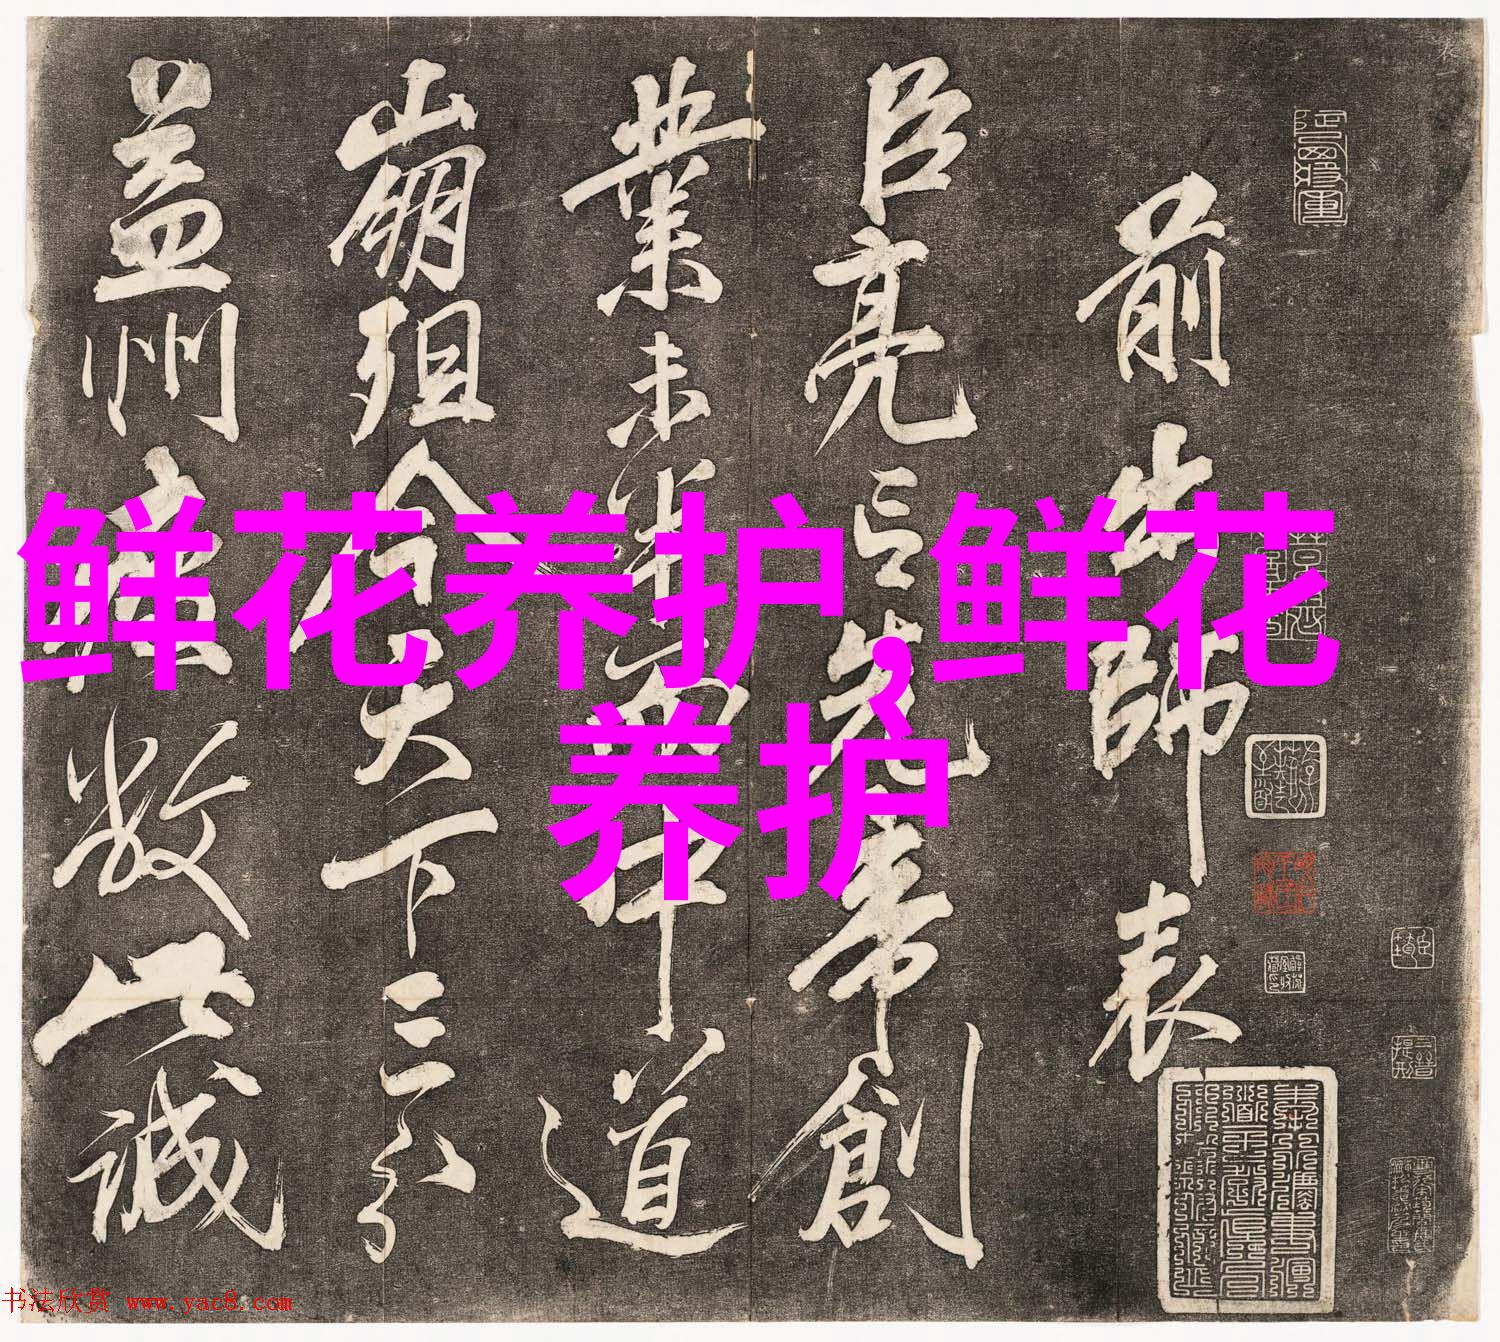 前出師表
臣亮言先帝創
業未半而中道
崩殂今天下三分
益州疲敝此誠
鲜花养护,鲜花
养护
书法欣赏 www.yac8.com